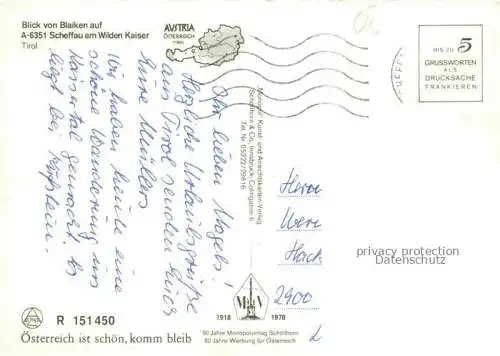 Blick von Blaiken auf
A-6351 Scheffau am Wilden Kaiser
Tirol
AUSTRIA
ÖSTERREICH
TIROL
BIS ZU 5
GRUSSWORTEN
ALS
DRUCKSACHE
FRANKIEREN
Ihr lieben Vogels!
Herzliche Urlaubsgrüße
aus Tirol senden Euch
Eure Müllers
Wir haben heute eine
schöne Wanderung ins
Kaisertal gemacht. Es
liegt bei Kufstein.
"Monopol" Kunst- und Ansichtskarten-Verlag
Schöllhorn & Co., Innsbruck, Colingasse 6
Tel. Nr. 05222/29816
Herrn
Wern
Hoch
2900
privacy protection
Datenschutz
R 151450
Österreich ist schön, komm bleib
1918 1978
60 Jahre Monopolverlag Schöllhorn
60 Jahre Werbung für Österreich